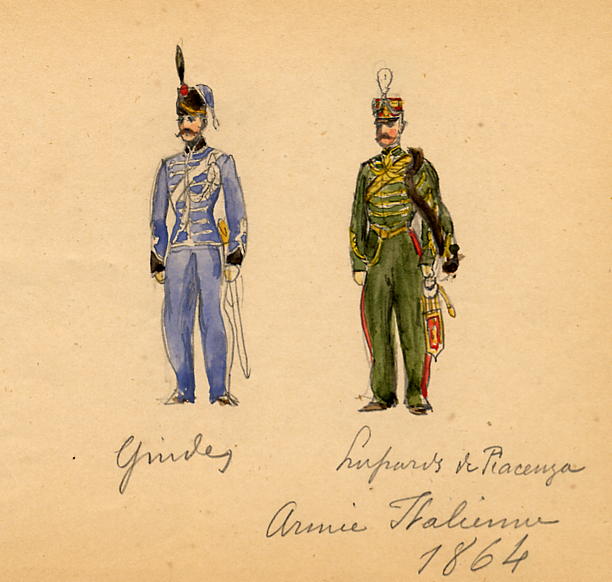 Guides
Hussards de Piacenza
Armée Italienne
1864